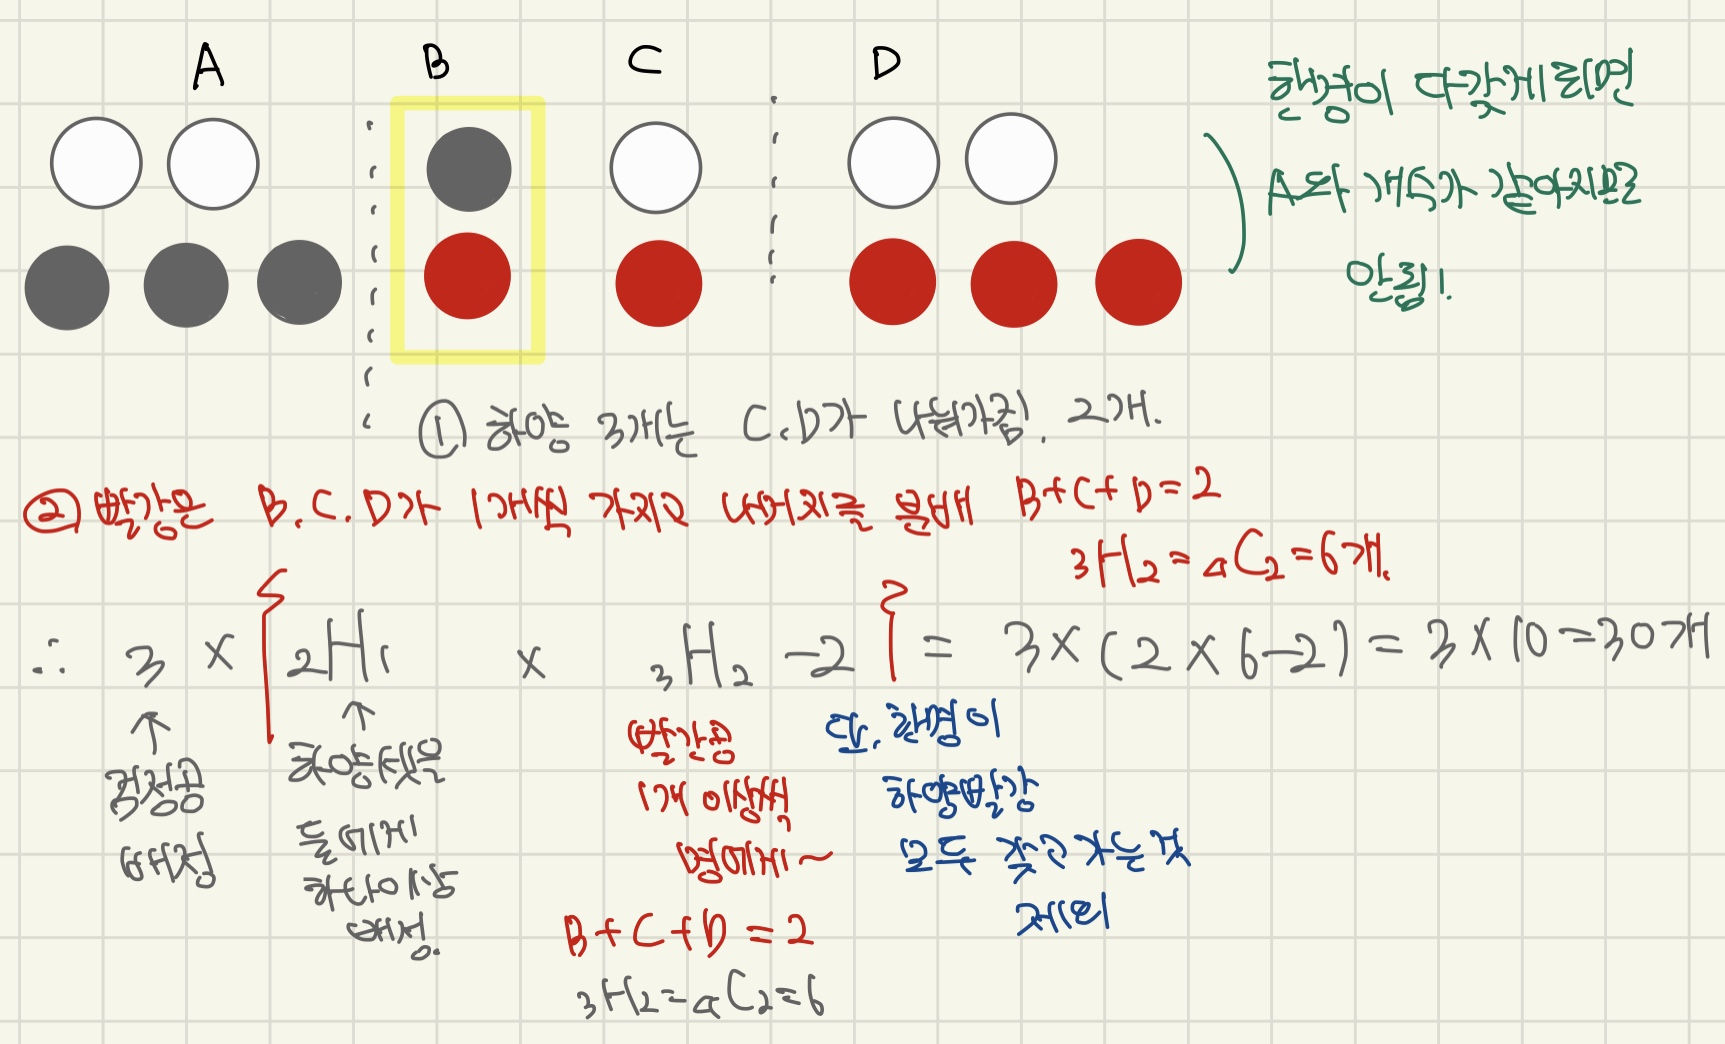 A B C D
한명이 다갖게 되면
A와 개수가 같아지므로
안됨!
① 하양 3개는 C.D가 나눠가짐. 2개.
② 빨강은 B.C.D가 1개씩 가지고 나머지를 분배 B+C+D=2
₃H₂=₄C₂=6개.
∴ 3 × { ₂H₁ × ₃H₂ -2 } = 3×(2×6-2) = 3×10=30개
↑ ↑
검정공
배정
하양셋을
둘에게
하나이상
배정.
빨간공
1개 이상씩
명에게~
B+C+D=2
₃H₂=₄C₂=6
단, 한명이
하양빨강
모두 갖고가는것
제외